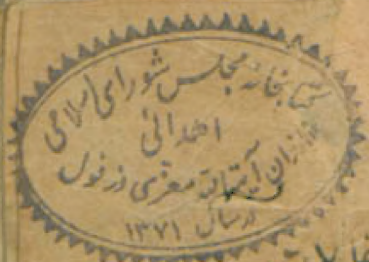 کتابخانه مجلس شورای اسلامی
اهدائی
خاندان آیت‌الله معزی دزفول
درسال ۱۳۷۱